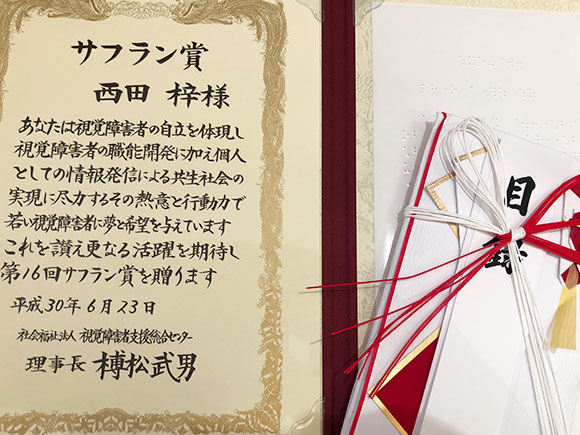 サフラン賞
西田 梓様
あなたは視覚障害者の自立を体現し
視覚障害者の職能開発に加え個人
としての情報発信による共生社会の
実現に尽力するその熱意と行動力で
若い視覚障害者に夢と希望を与えています
これを讃え更なる活躍を期待し
第16回サフラン賞を贈ります
平成30年6月23日
社会福祉法人 視覚障害者支援総合センター
理事長 榑松武男
目録